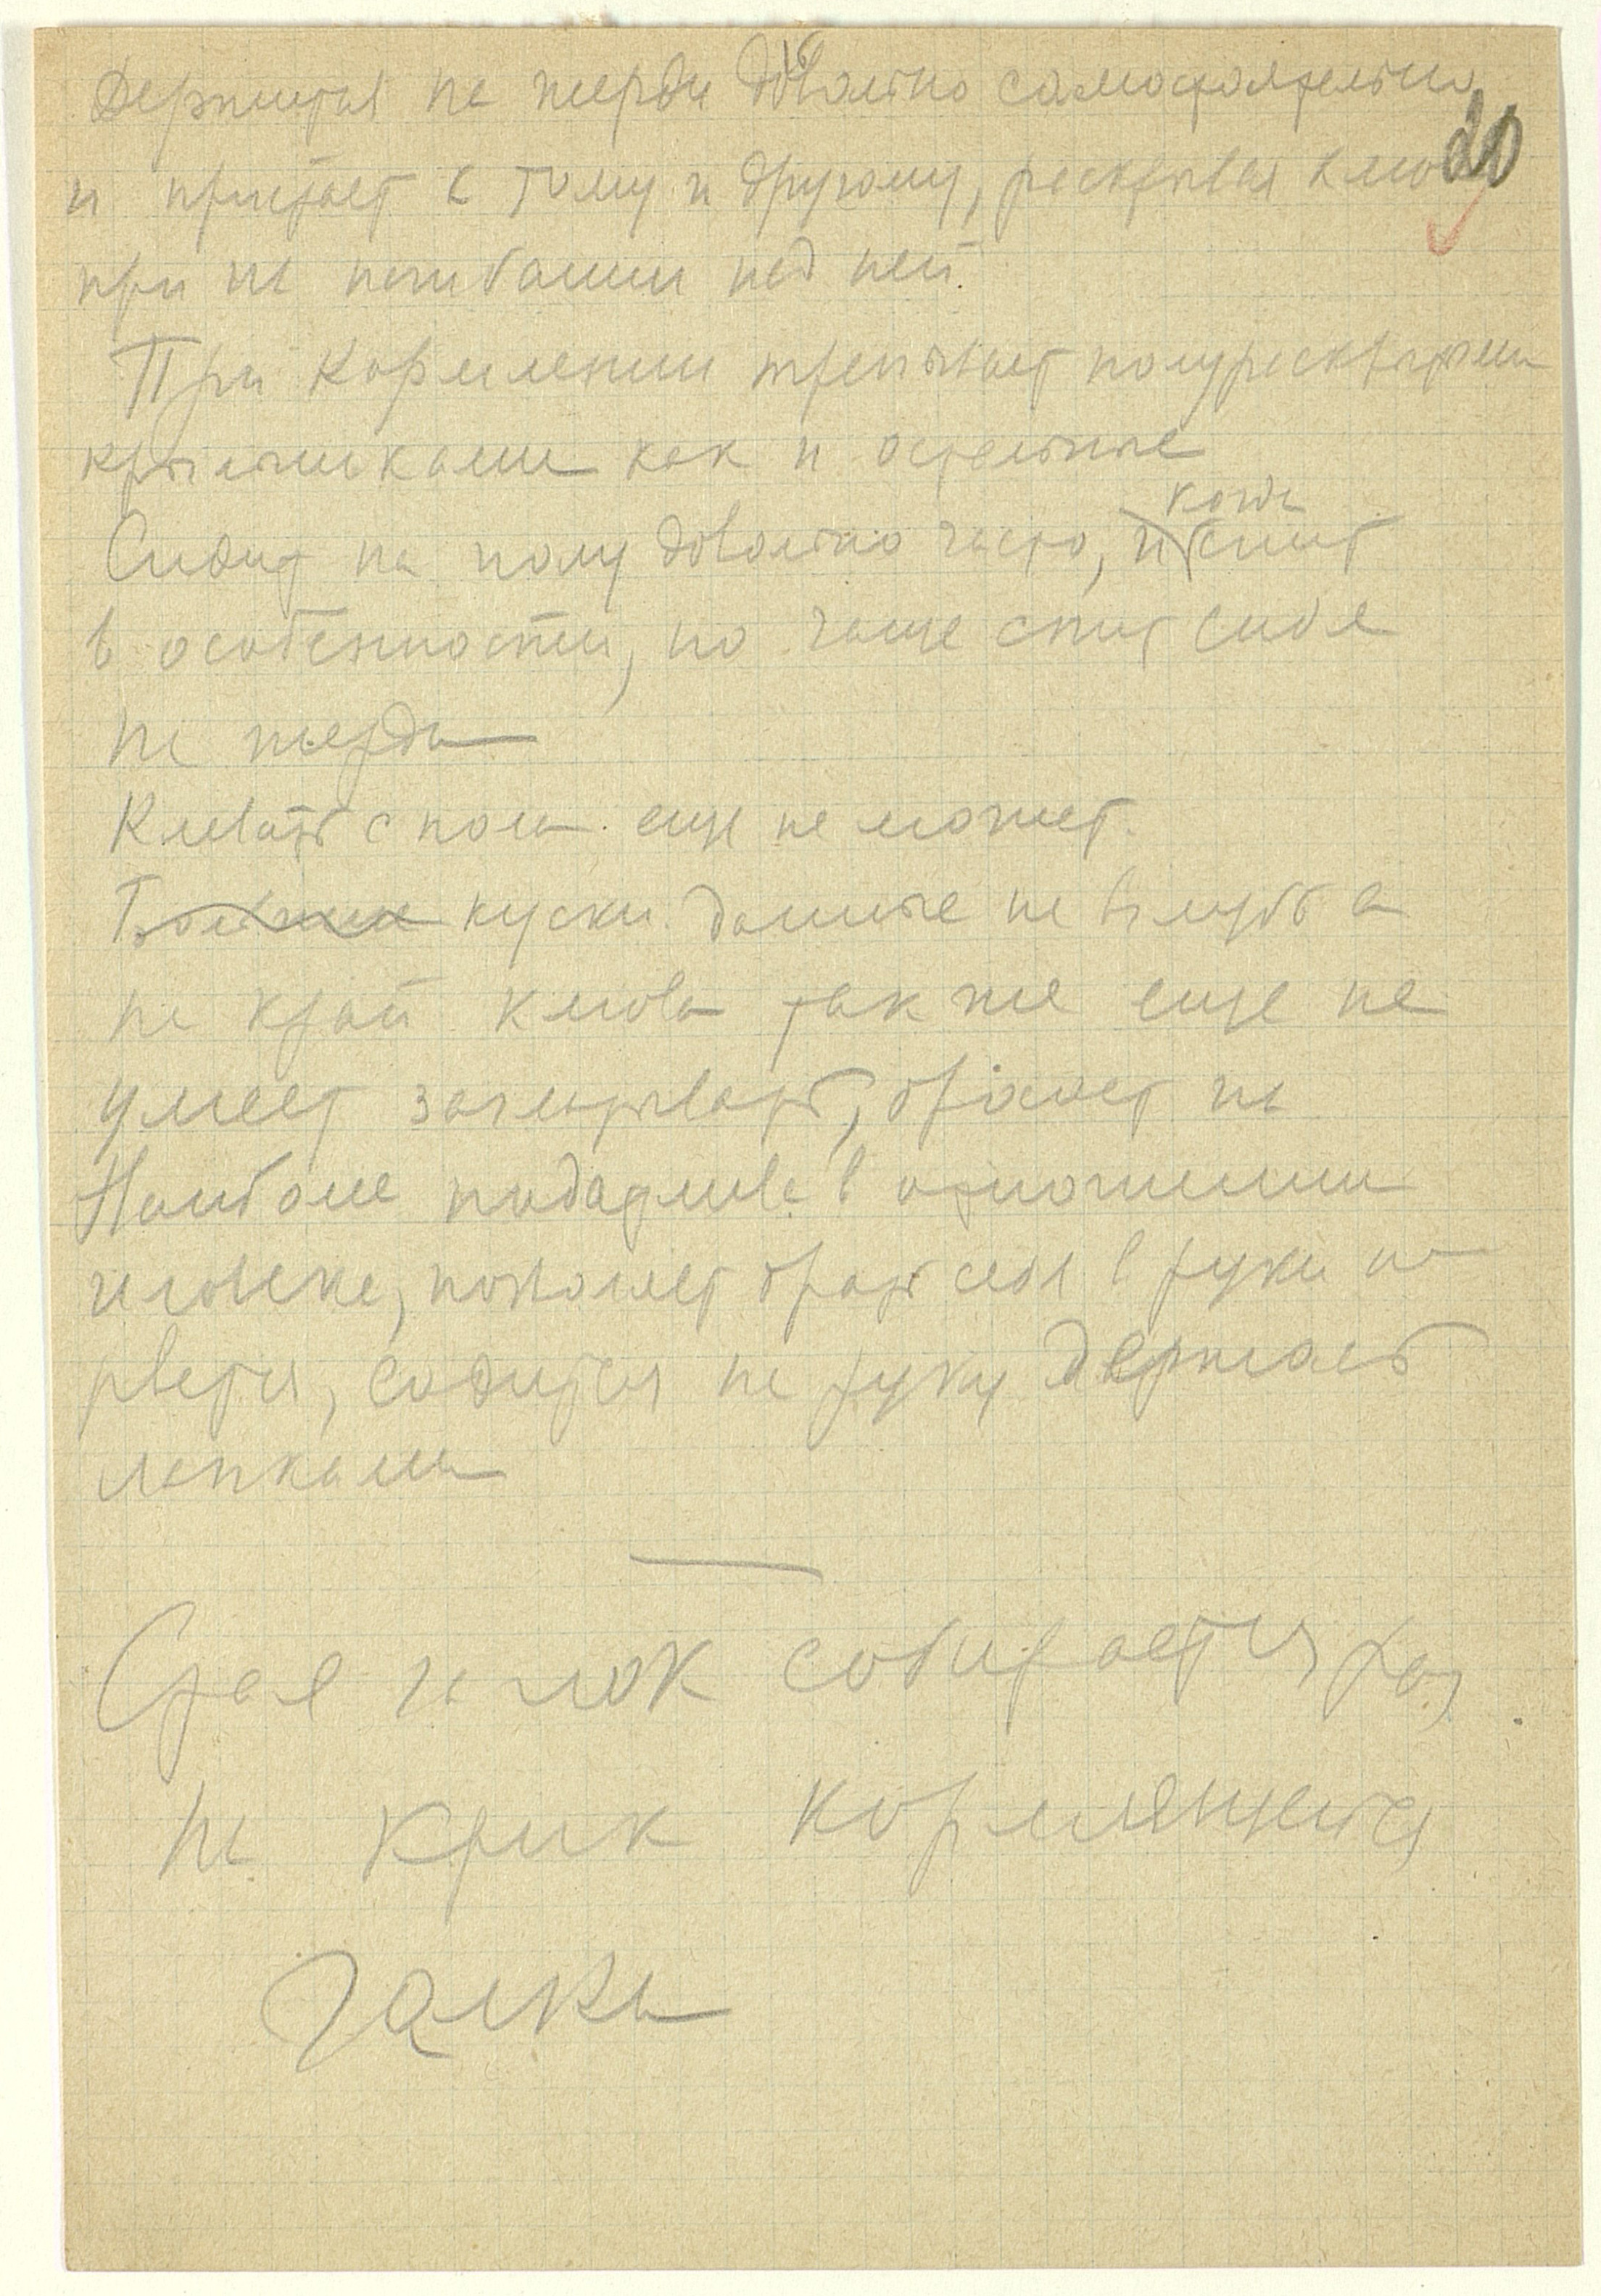 Держится на жерди довольно самостоятельно
20
и пристает к тому и другому, раскрывая клюв
при нагибании над ней.
При кормлении трепыхает полураскрытыми
крылышками как и остальные
Сидит на полу довольно часто, когда спит
в особенности, но чаще спит сидя
на жерди
Клевать с пола еще не может.
Большие куски данные не вглубь а
на край клюва также еще не
умеет заглатывать, бросает их
Наиболее податлива в отношении
человека, позволяет брать себя в руки не
рвется, садится на руку держась
лапками
Стая галок собирается раз
на крик кормящейся
галки